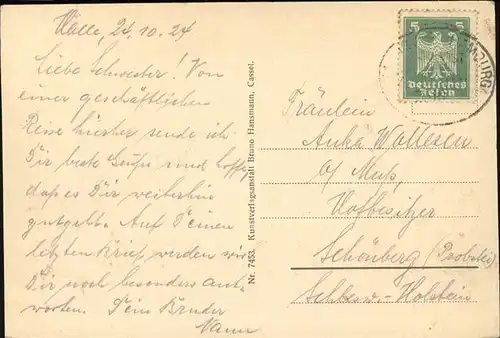 24.10.24
Liebe Schwester! Von
einer geschäftlichen
Reise hierher sende ich
Dir beste Grüße und hoffe,
daß es Dir weiterhin
gutgeht. Auf Deinen
letzten Brief werden wir
Dir noch besonders ant-
worten. Dein Bruder
Nr. 7453. Kunstverlagsanstalt Bruno Hansmann, Cassel.
5 5
Deutsches
Reich
Fräulein
Anka
Hofbesitzer
Schönberg (Probstei)
Schlesw.-Holstein